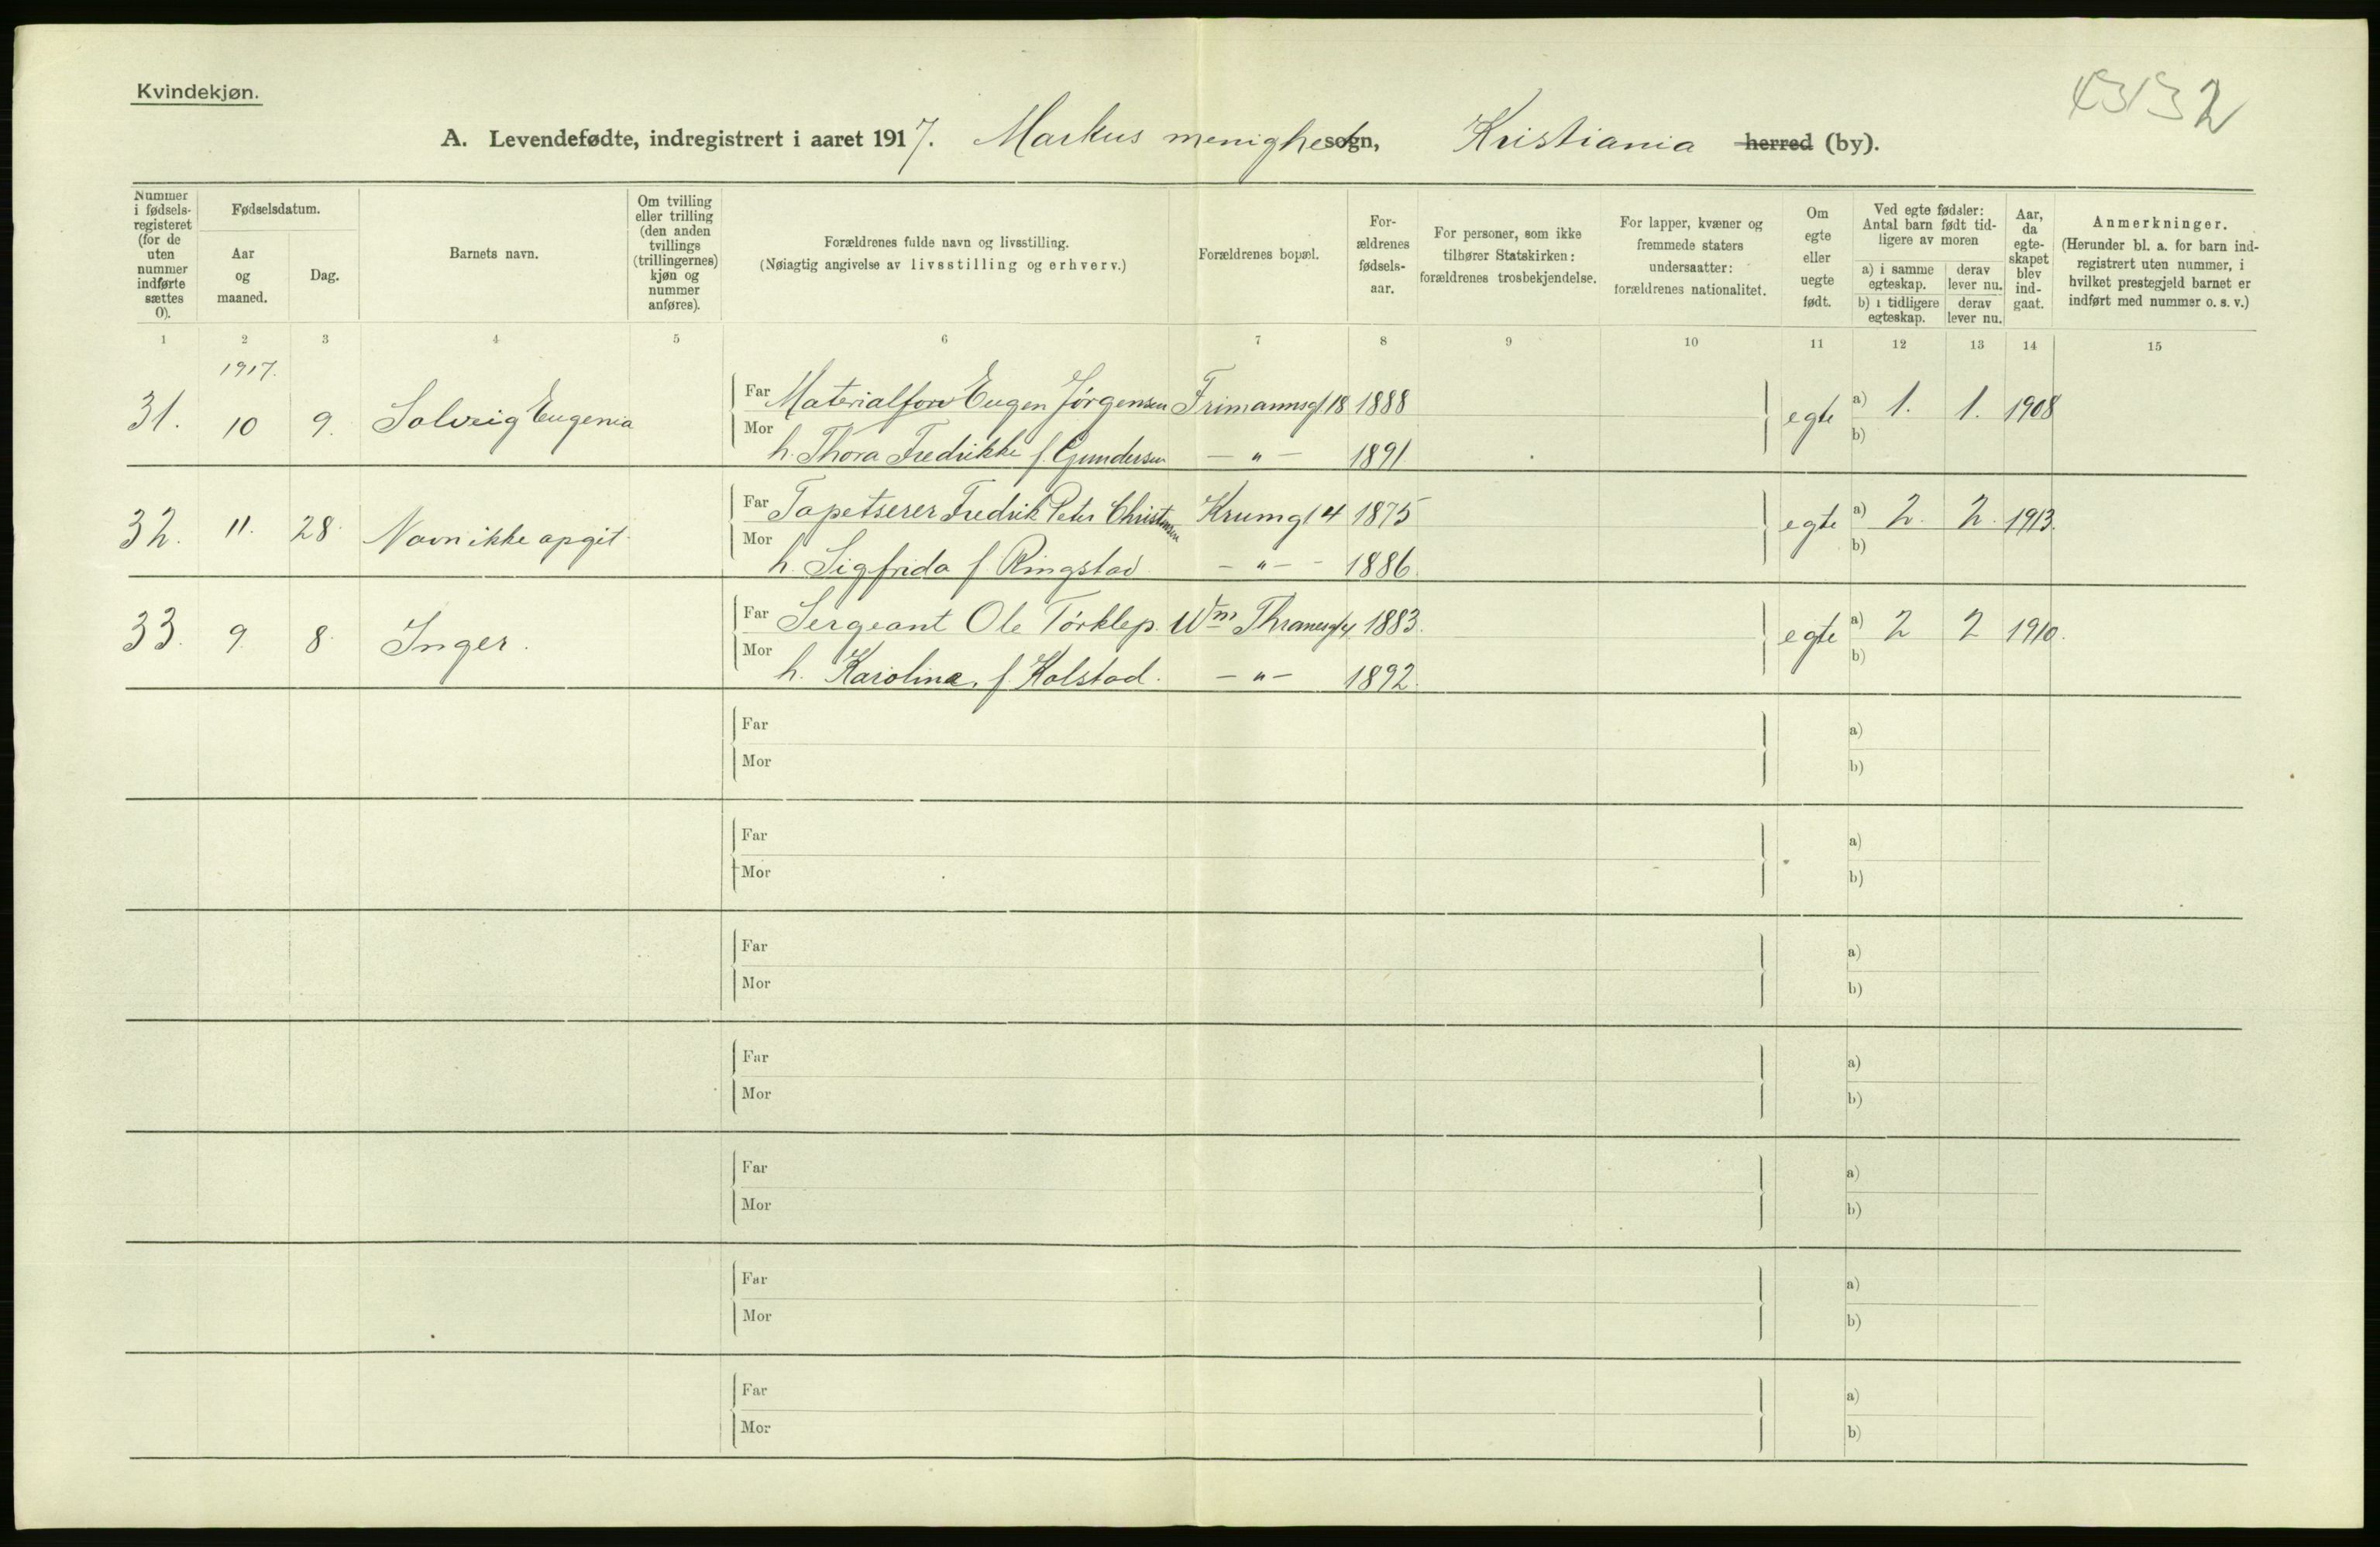 Kvindekjøn.
A. Levendefødte, indregistrert i aaret 1917. Markus menighet sogn, Kristiania herred (by).
Nummer i fødsels-registeret (for de uten nummer indførte sættes 0).
Fødselsdatum.
Aar og maaned.
Dag.
Barnets navn.
Om tvilling eller trilling (den anden tvillings (trillingernes) kjøn og nummer anføres).
Forældrenes fulde navn og livsstilling.
(Nøiagtig angivelse av livsstilling og erhverv.)
Forældrenes bopæl.
For-ældrenes fødsels-aar.
For personer, som ikke tilhører Statskirken: forældrenes trosbekjendelse.
For lapper, kvæner og fremmede staters undersaatter: forældrenes nationalitet.
Om egte eller uegte født.
Ved egte fødsler: Antal barn født tid-ligere av moren
a) i samme egteskap.
derav lever nu.
b) i tidligere egteskap.
derav lever nu.
Aar, da egte-skapet blev ind-gaat.
Anmerkninger.
(Herunder bl. a. for barn ind-registrert uten nummer, i hvilket prestegjeld barnet er indført med nummer o. s. v.)
1 2 3 4 5 6 7 8 9 10 11 12 13 14 15
1917.
31. 10 9. Solveig Eugenia Far Materialforv Eugen Jörgensen Frimannsgt 18 1888 egte a) 1. 1. 1908
Mor h. Thora Fredrikke f. Gundersen — " — 1891 b)
32. 11. 28. Navn ikke opgit. Far Tapetserer Fredrik Peter Christensen Krumgt 4 1875 egte a) 2. 2. 1913.
Mor h. Sigfrida f. Ringstad — " — 1886. b)
33. 9. 8. Inger. Far Sergeant Ole Törklep. Wm Thranesgt 1883. egte a) 2 2 1910.
Mor h. Karoline, f. Kolstad. — " — 1892. b)
Far a)
Mor b)
Far a)
Mor b)
Far a)
Mor b)
Far a)
Mor b)
Far a)
Mor b)
Far a)
Mor b)
Far a)
Mor b)